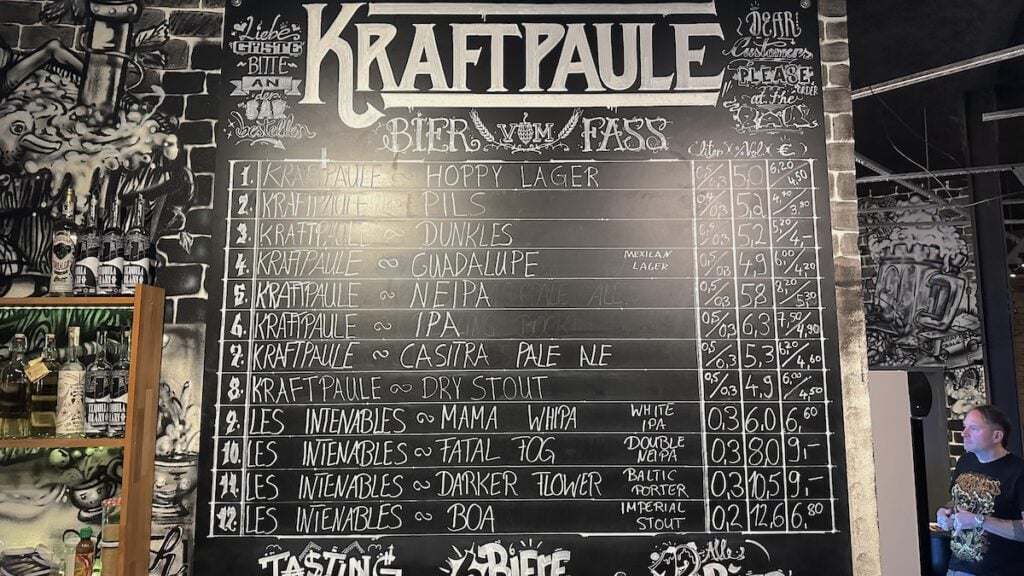 KRAFTPAULE
Liebe GÄSTE BITTE AN DER BAR bestellen
DEAR Customers PLEASE ORDER at the BAR
BIER VOM FASS
(Liter % Vol €)
1. KRAFTPAULE ~ HOPPY LAGER 0,5/0,3 5,0 6,20/4,50
2. KRAFTPAULE ~ PILS 0,4/0,3 5,2
3. KRAFTPAULE ~ DUNKLES 0,5/0,3 5,2 4,-
4. KRAFTPAULE ~ GUADALUPE MEXICAN LAGER 0,5/0,3 4,9 6,00/4,20
5. KRAFTPAULE ~ NEIPA 0,5/0,3 5,8 8,20/5,30
6. KRAFTPAULE ~ IPA 0,5/0,3 6,3 7,50/4,90
7. KRAFTPAULE ~ CASITRA PALE ALE 0,5/0,3 5,3 6,20/4,60
8. KRAFTPAULE ~ DRY STOUT 0,5/0,3 4,9 6,00/4,50
9. LES INTENABLES ~ MAMA WHIPA WHITE IPA 0,3 6,0 6,60
10. LES INTENABLES ~ FATAL FOG DOUBLE NEIPA 0,3 8,0 9,-
11. LES INTENABLES ~ DARKER FLOWER BALTIC PORTER 0,3 10,5 9,-
12. LES INTENABLES ~ BOA IMPERIAL STOUT 0,2 12,6 6,80
TASTING BIERE Alle